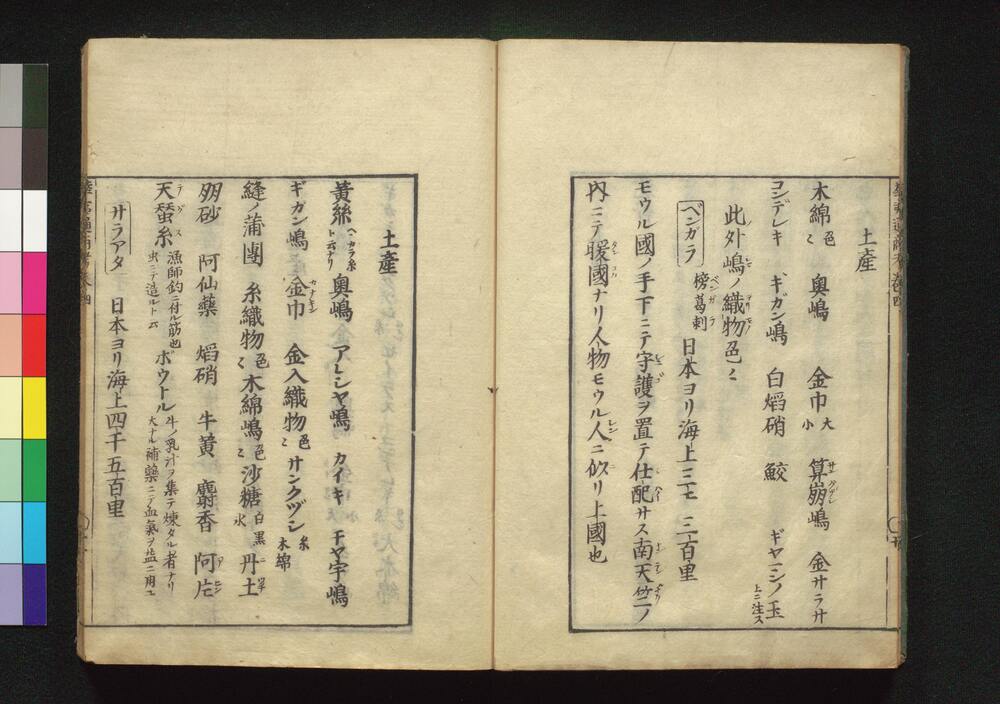 土產
木綿 色〻 奥嶋 金巾 大小 算崩嶋 サンクヅシ 金サラサ
コンデレキ ギガン嶋 白熖硝 鮫 ギヤマンノ玉 上ニ注ス
此外嶋ノ織物色〻
ベンガラ 榜葛剌 ベンガラ 日本ヨリ海上三千三百里
モウル國ノ手下ニテ守護ヲ置テ仕配サス南天竺ノ
内ニテ暖國ナリ人物モウル人ニ似リ上國也
土產
黃絲 ヘカラ糸ト云ナリ 奥嶋 アレシヤ嶋 カイキ チヤウ嶋
ギガン嶋 金巾 カナキン 金入織物 色〻 サンクヅシ 糸 木綿
縫ノ蒲團 糸織物 色〻 木綿嶋 色〻 沙糖 白 黒 氷 丹土
硇砂 阿仙藥 熖硝 牛黃 麝香 阿片
天蚕糸 テグス 漁師釣ニ付ル筋也 虫ニテ造ルト云 ボウトル 牛ノ乳汁ヲ集テ煉タル者ナリ 大ナル補藥ニテ血氣ヲ益ニ用ユ
サラアタ 日本ヨリ海上四千五百里